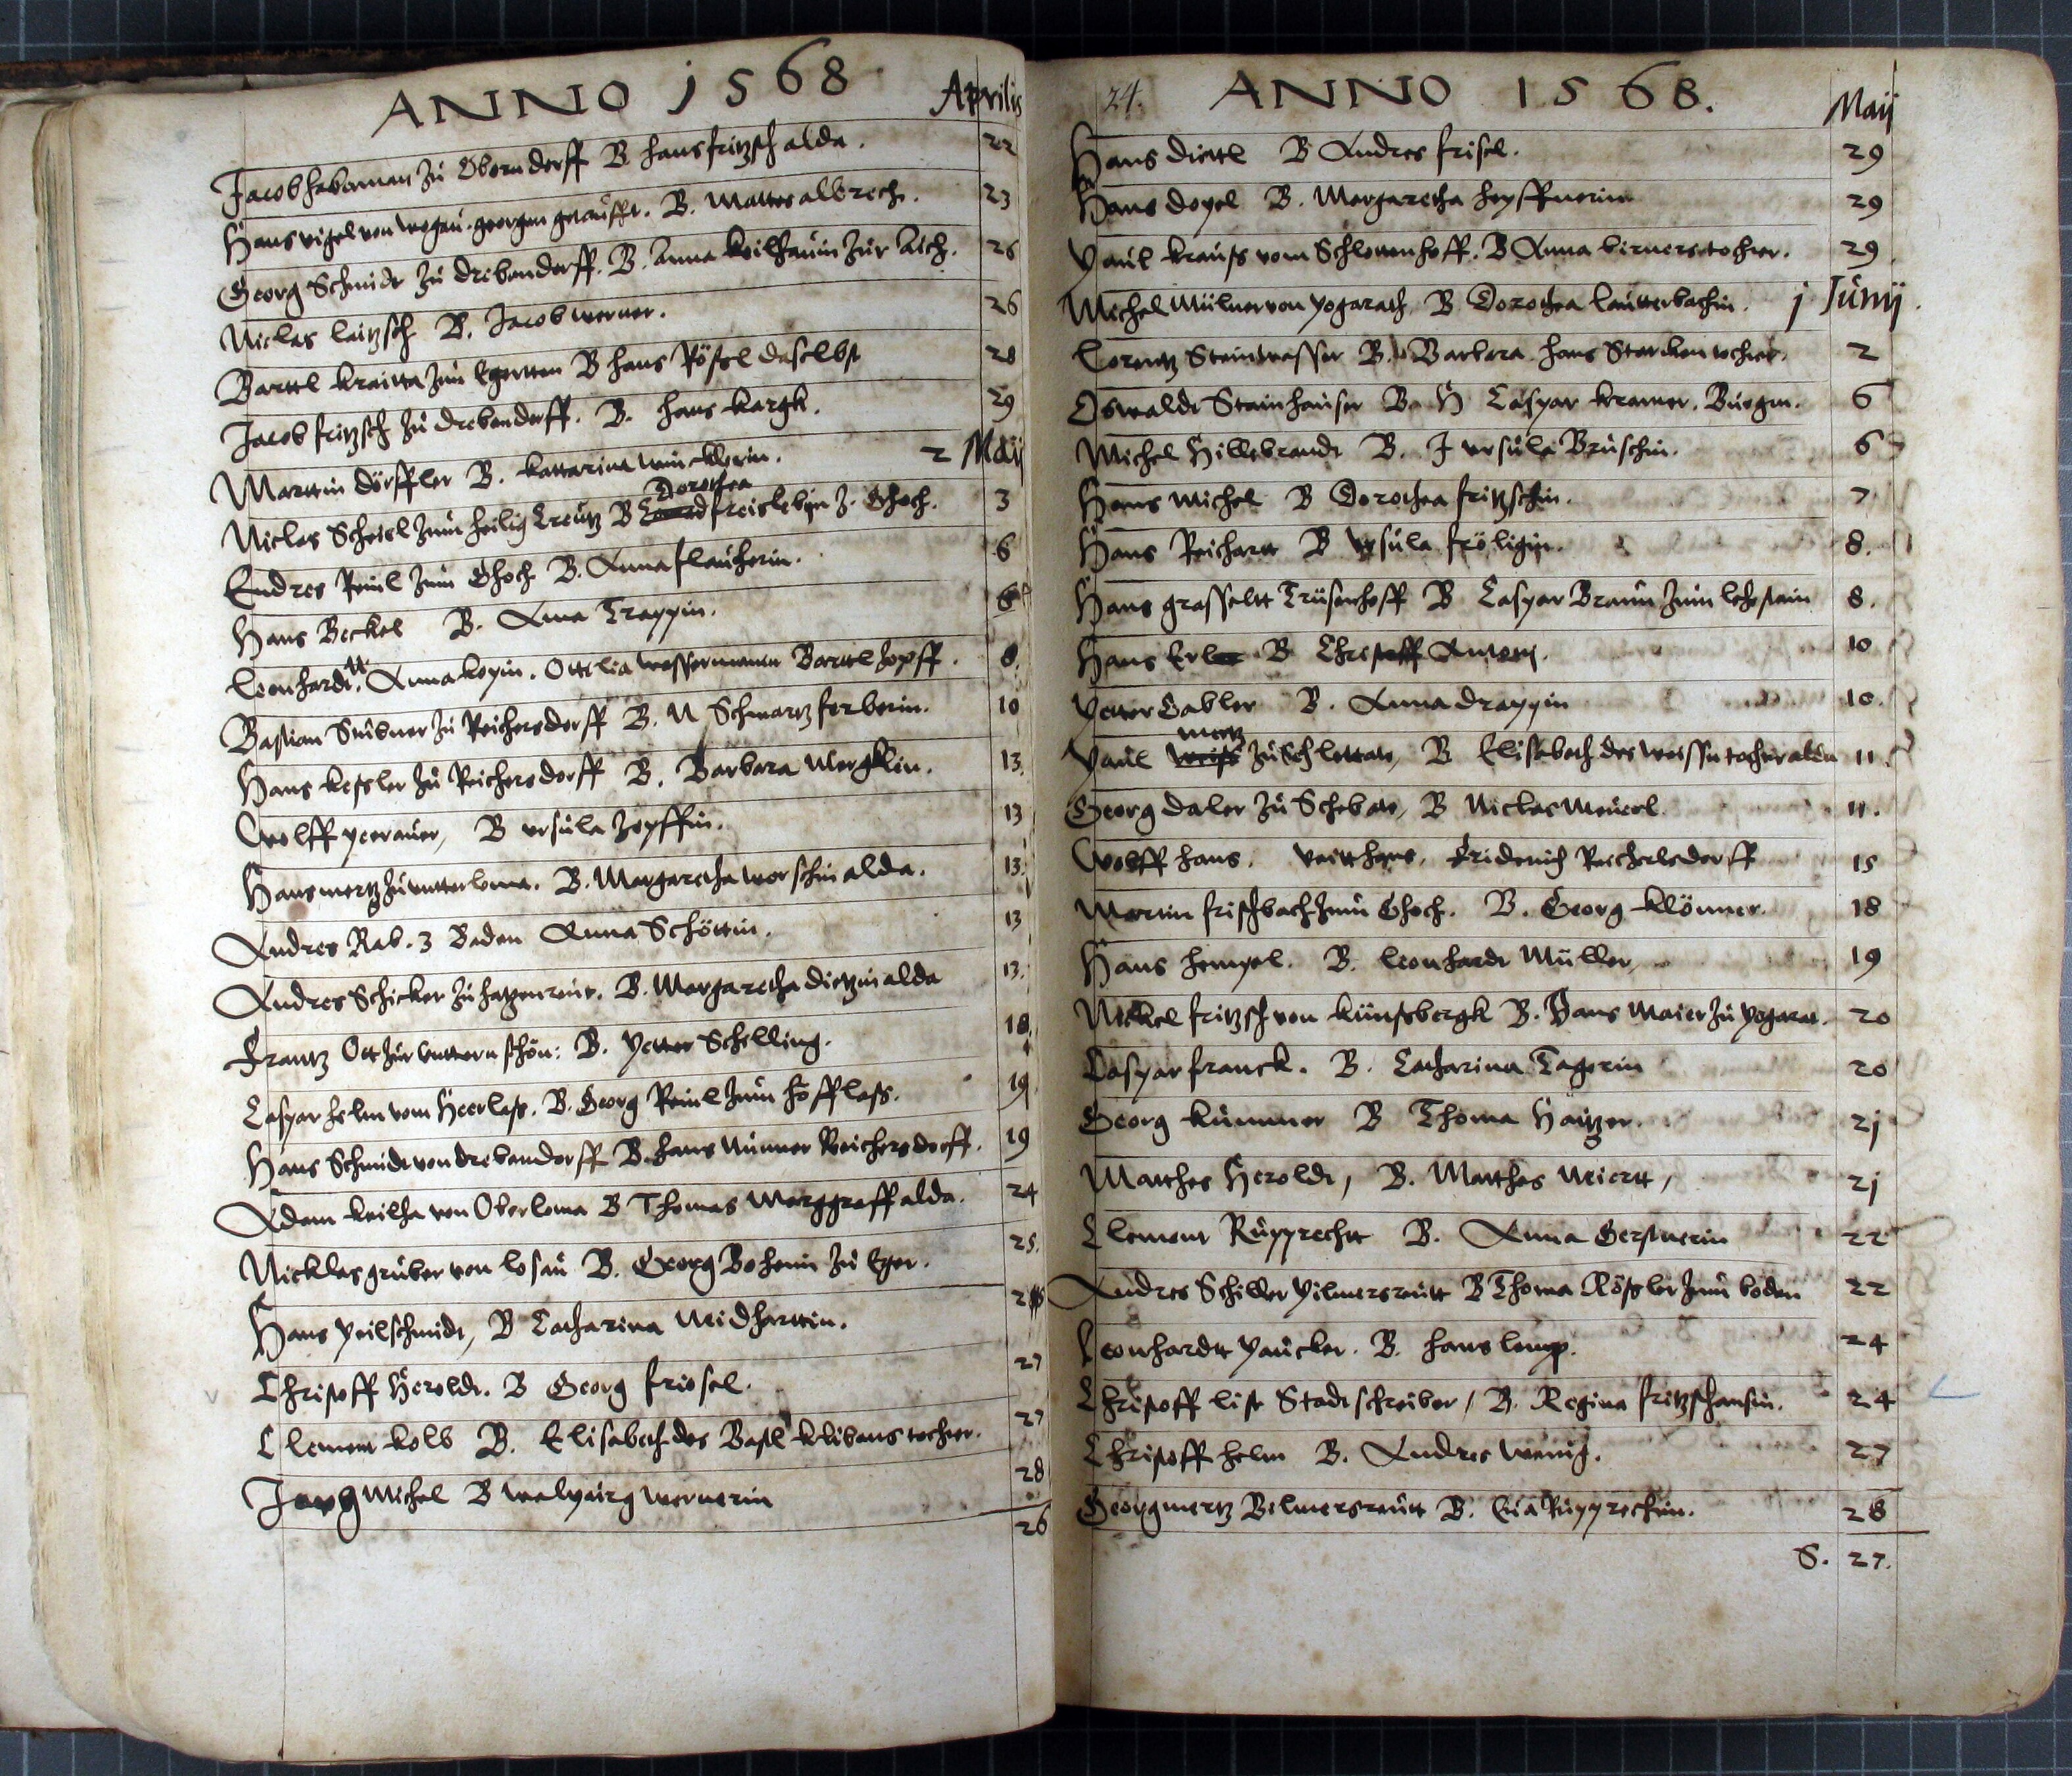 ANNO 1568
Aprilis
Jacob haberman zu Oberndorff B. hans fritzsch alda. 22
Hans vigel von wogau. georgen getaufft. B. Mattes albrech. 23
Georg Schmidt zu drebendorff. B. Anna keilhauin zur Aich. 26
Niclas laitzsch B. Jacob werner. 26
Barttl kraitta zum Egertten B hans Rössel daselbst 28
Jacob fritzsch zu drebendorff. B. hans kargk. 29
Marttin dörffler B. kattarina wincklerin. 2 Maij
Niclas Scheisel zum heilig Creutz B Dorothea freislebin z. Ghoch. 3
Endres Reinl zum Ghoch B. Anna flaucherin. 6
Hans Beckel B. Anna Trappin. 6
Leonhardt. Anna kopin. Ottilia wassermanin Barttl Hopff. 8.
Bastian Stübner zu Reichersdorff B. N Schwartzferberin. 10
Hans kessler zu Reichersdorff B. Barbara Mergklin. 13.
Wolff peerauer, B ursula zopffin. 13
Hans mertz zu untterloma. B. Margaretha worschin alda. 13
Andres Rab. z Baden Anna Schöttin. 13
Andres Schicker zu hatzenreut. B. Margaretha dietzin alda 13.
Frantz Ott zur unttern schön: B. Petter Schelling. 18.
Caspar helm vom Heerlass. B. Georg Reinl zum hofflass. 19
Hans Schmidt von drebendorff B. hans Nünner Reichersdorff. 19
Adam keilha von Oberloma B Thomas Marggraff alda. 24
Nicklas gruber von losau B. Georg Bohemin zu Eger. 25.
Hans Peilschmidt, B Catharina Neidharttin. 26
Christoff Heroldt. B Georg friesel. 27
Clement kolb B. Elisabeth des Bastl klibans tochter. 27
Jorg Michel B walpurg wernerin 28
26
24.
ANNO 1568.
Maij
Hans diettl B Andres frisel. 29
Hans dopel B. Margaretha hopffnerin 29
Paul krauss vom Schlottenhoff. B Anna birners tochter. 29.
Michel Mülner von pograth B Dorothea lautterbachin. j Junij.
Lorentz Steinwasser B. Barbara hans Starcken tochter. 2
Oswaldt Stainhauser B. H Caspar kramer. Burgm. 6
Michel Hillebrandt B. J ursula Bruschin. 6
Hans Michel B Dorothea fritzschin. 7
Hans Reichartt B Ursula fröligin. 8.
Hans grasseltt Trüsenhoff B Caspar Braun zum lehstain 8.
Hans Erler B Christoff Antoni. 10
Petter Gabler B. Anna drappin 10.
Paul mertz zu Schlottan, B Elisabeth des weissn tochter alda 11.
Georg daler zu Scheban, B Niclas Meuerl. 11.
Wolff hans. Veitt hans. Friderich Reichersdorff 15
Martin frischbach zum Ghoch. B. Georg klönner. 18
Hans Hempel. B. Leonhardt Müller, 19
Nickel fritzsch von künssbergk B. Hans Maier zu pogratt. 20
Caspar franck. B. Catharina Tagerin 20
Georg kummer B Thoma Haitzer. 21
Matthes Heroldt, B. Matthes Meiertt, 21
Clement Rupprechtt B. Anna Gerstnerin 22
Andres Schiller pilmersreutt B Thoma Rössler zum boden 22
Leonhardtt paucker. B. hans lemp. 24
Christoff list Stadtschreiber, B. Regina fritzschansin. 24
Christoff helm B. Andres Wenig. 27
Georg mertz Bilmersreutt B. Eva Rupprechtin. 28
S. 27.